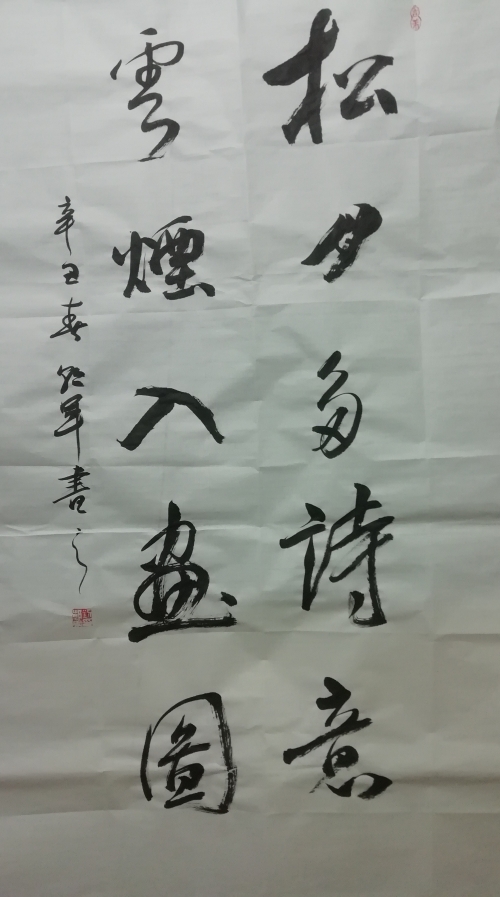 松月多詩意
雲煙入畫圖
辛丑春軍書之